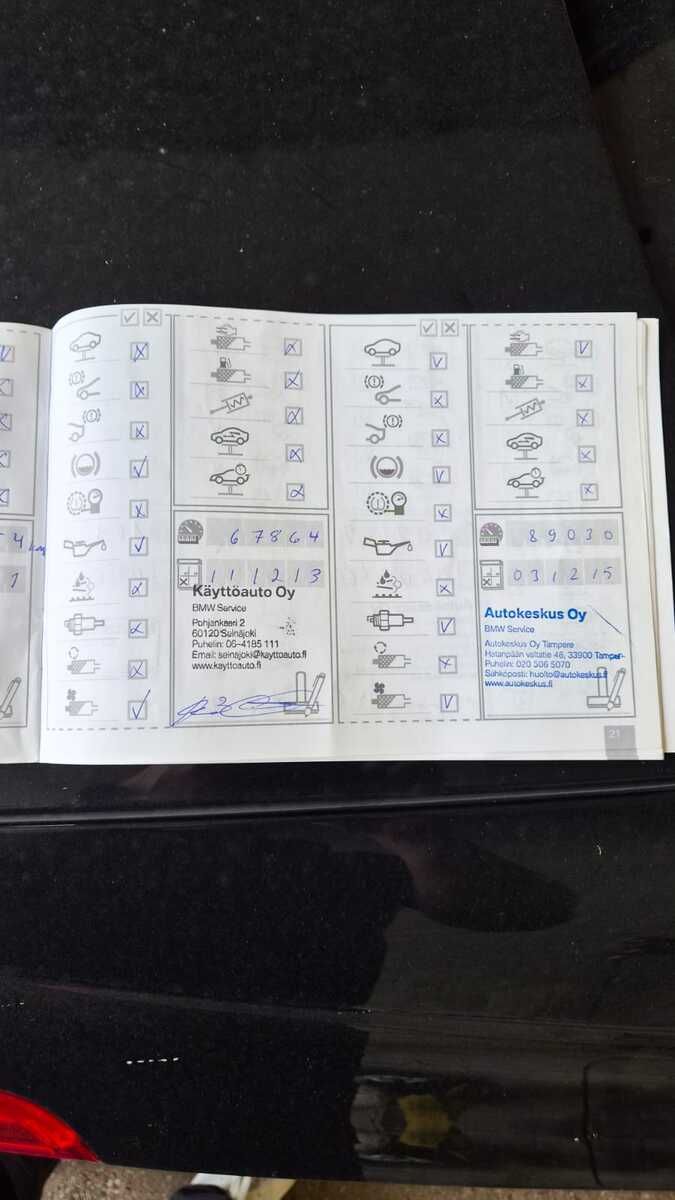 4 km
1
6 7 8 6 4
1 1 1 2 1 3
Käyttöauto Oy
BMW Service
Pohjankaari 2
60120 Seinäjoki
Puhelin: 06-4185 111
Email: seinajoki@kayttoauto.fi
www.kayttoauto.fi
8 9 0 3 0
0 3 1 2 1 5
Autokeskus Oy
BMW Service
Autokeskus Oy Tampere
Hatanpään valtatie 48, 33900 Tampere
Puhelin: 020 506 5070
Sähköposti: huolto@autokeskus.fi
www.autokeskus.fi
21